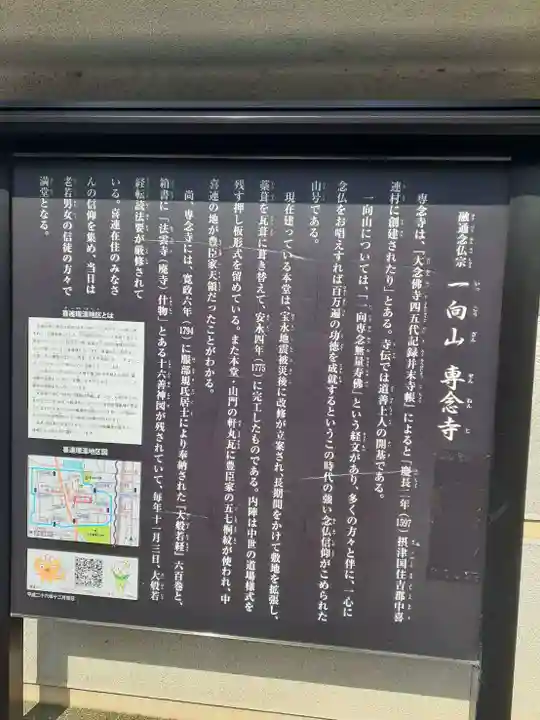 融通念仏宗 一向山 専念寺
専念寺は、「大念佛寺四五代記録并末寺帳」によると「慶長二年（1597）摂津国住吉郡中喜
連村に創建されたり」とある。寺伝では道善上人の開基である。
一向山については、「一向専念無量寿佛」という経文があり、多くの方々と伴に、一心に
念仏をお唱えすれば百万遍の功徳を成就するというこの時代の強い念仏信仰がこめられた
山号である。
現在建っている本堂は、宝永地震被災後に改修が立案され、長期間をかけて敷地を拡張し、
藁葺を瓦葺に葺き替えて、安永四年（1775）に完工したものである。内陣は中世の道場様式を
残す押し板形式を留めている。また本堂・山門の軒丸瓦に豊臣家の五七桐紋が使われ、中
喜連の地が豊臣家天領だったことがわかる。
尚、専念寺には、寛政六年（1794）に服部規氏居士により奉納された「大般若経」六百巻と、
箱書に「法雲寺（廃寺）什物」とある十六善神図が残されていて、毎年十一月三日、大般若
経転読法要が厳修されて
いる。喜連在住のみなさ
んの信仰を集め、当日は
老若男女の信徒の方々で
満堂となる。
喜連環濠地区とは
喜連環濠地区図
平成二十六年十二月吉日